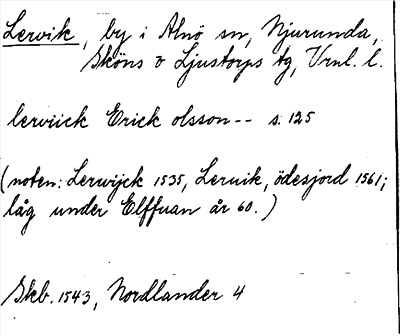 Lervik, by i Alnö sn, Njurunda,
Sköns o Ljustorps tg, Vrnl. l.
lerviick Erick olsson-- s. 125
(noten: Lerwijck 1535, Leruik, ödesjord 1561;
låg under Elffuan år 60.)
Skb. 1543, Nordlander 4